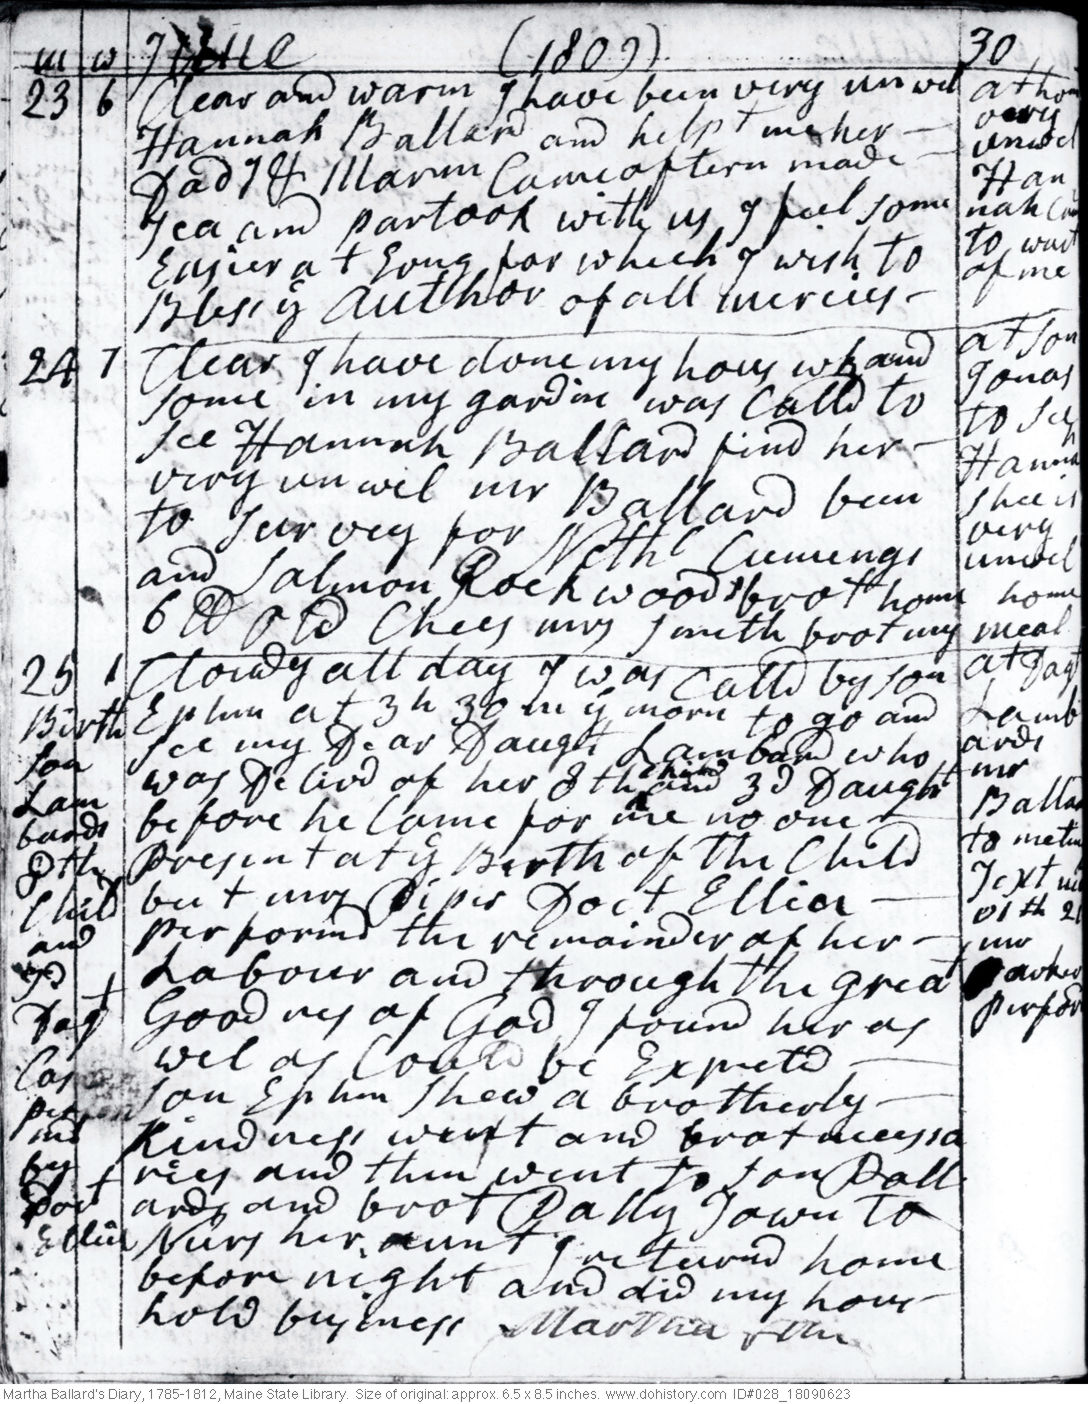 m w June (1809) 30
23 6 Clear and warm I have been very unwel
Hannah Ballard and helpt me her
Dad & Marm Came aftern made
Tea and partook with us I feel some
Easier at Evng for which I wish to
Bless ye Author of all mercies
at hom
very
unwel
Han
nah Cam
to wait
of me
24 7 Clear I have done my hous wk and
some in my gardin was Calld to
see Hannah Ballard find her
very unwel mr Ballard been
to survey for Nethl Cumings
and Salmon Rockwood brot home
6 lb old Chees mrs Smith brot my
at son
Jonas
to see
Hanna
shee is
very
unwel
home
meal
25 1 Cloudy all day I was Calld by son
Ephm at 3 h 30 m ye morn to go and
see my Dear Daugt Lambard who
was Delivd of her 8th child and 3d Daught
before he Came for me no one
present at ye Birth of the Child
but mrs Piper Doct Ellia
performd the remainder of her
Labour and through the great
Goodness of God I found her as
wel as Could be Expectd
son Ephm shew a brotherly
kindness went and brot necessa
ries and then went to son Poll
ards and brot Dally Town to
Nurs her aunt I returnd home
before night and did my hous
hold business
Birth
son
Lam
bards
8th
Child
and
3d
Dagt
by
Doct
Ellia
at Dagt
Lamb
ards
mr
Ballard
to meetn
Text
mr
Parker
perford
Martha Ballard's Diary, 1785-1812, Maine State Library. Size of original: approx. 6.5 x 8.5 inches. www.dohistory.com ID#028_18090623